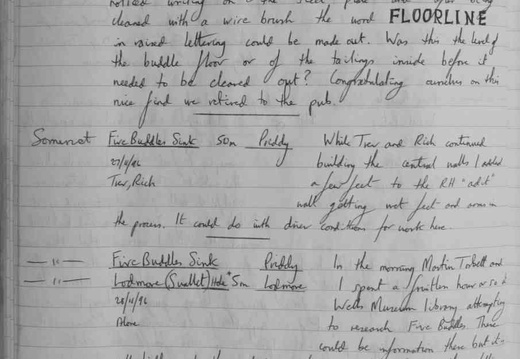 noticed writing on
cleaned with a wire brush the word FLOORLINE
in raised lettering could be made out. Was this the level of
the buddle floor or of the tailings inside before it
needed to be cleaned out? Congratulating ourselves on this
nice find we retired to the pub.
Somerset Five Buddles Sink 50m Priddy While Trev and Rich continued
27/4/96 building the central walls I added
Trev, Rich a few feet to the RH "adit"
wall getting wet feet and arms in
the process. It could do with drier conditions for work here.
— " — Five Buddles Sink Priddy In the morning Martin Torbett and
— " — Lodmore (Swallet) Hole 5m Lodmore I spent a fruitless hour or so in
28/4/96 Wells Museum Library attempting
Alone to research Five Buddles. There
could be information there but it's